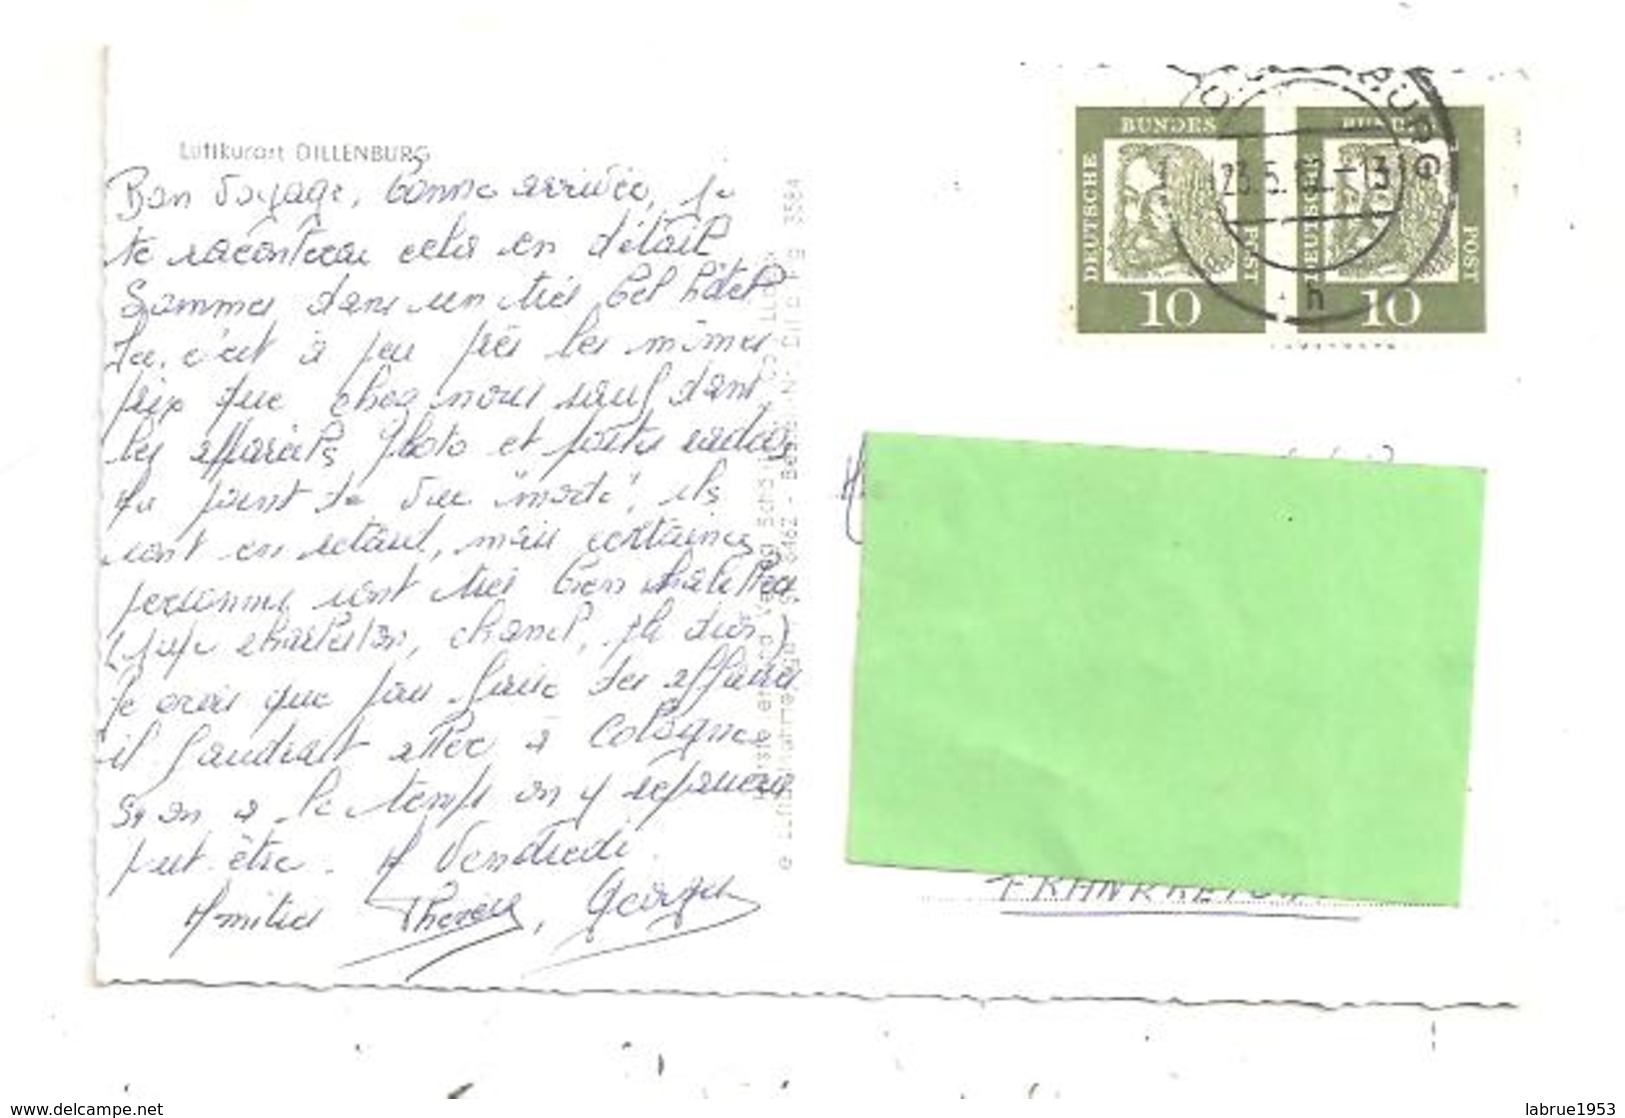 Luftkurort DILLENBURG
Bon voyage, bonne arrivée, je
te raconterai cela en détail
Sommes dans un très bel hôtel
Ici c'est à peu près les mêmes
prix que chez nous sauf dans
les appareils photo et postes radios
Au point de vue "mode", ils
sont en retard, mais certaines
personnes sont très bien habillées
(type charleston, chanel, dior)
Je crois que pour faire des affaires
il faudrait aller à Cologne
Si on a le temps on y repassera
peut-être. A Vendredi.
Amitiés Thérèse, Georges
3584
BUNDES
DEUTSCHE
POST
10
BUNDES
DEUTSCHE
POST
10
BURG
23.5.62-13
h
FRANKREICH
www.delcampe.net
labrue1953